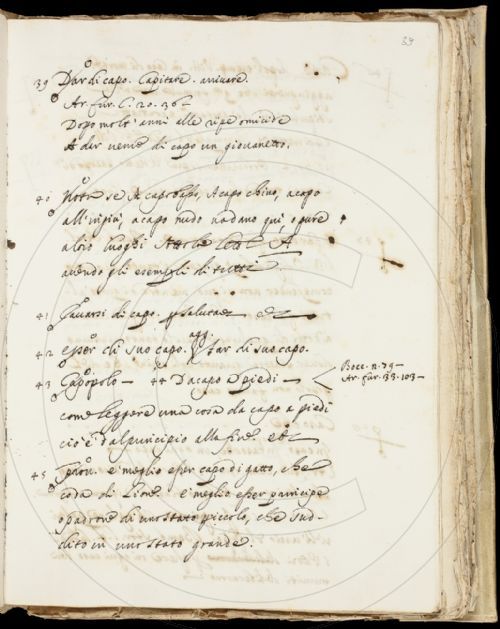 39
39 Dar di capo. Capitare. arrivare.
Ar. fur. C. 20. 36
Dopo molt' anni alle ripe omicide
A dar venne di capo un giovanetto.
40 Nota se A capo basso, A capo chino, a capo
all'ingiù, a capo nudo vadano quì, o pure
altri luoghi sotto la lett. A
avendo gli esempli di tutti
41 Cavarsi di capo. p salutare etc
agg.
42 Esser di suo capo. Far di suo capo.
43 Capopolo — 44 Da capo a piedi — Bocc. n. 79 —
Ar. fur. 33. 103 —
come leggere una cosa da capo a piedi
cioè dal principio alla fine. etc
45 Prov. è meglio esser capo di gatto, che
coda di Lione. è meglio esser principe
o padrone di uno stato piccolo, che sud-
dito in uno stato grande